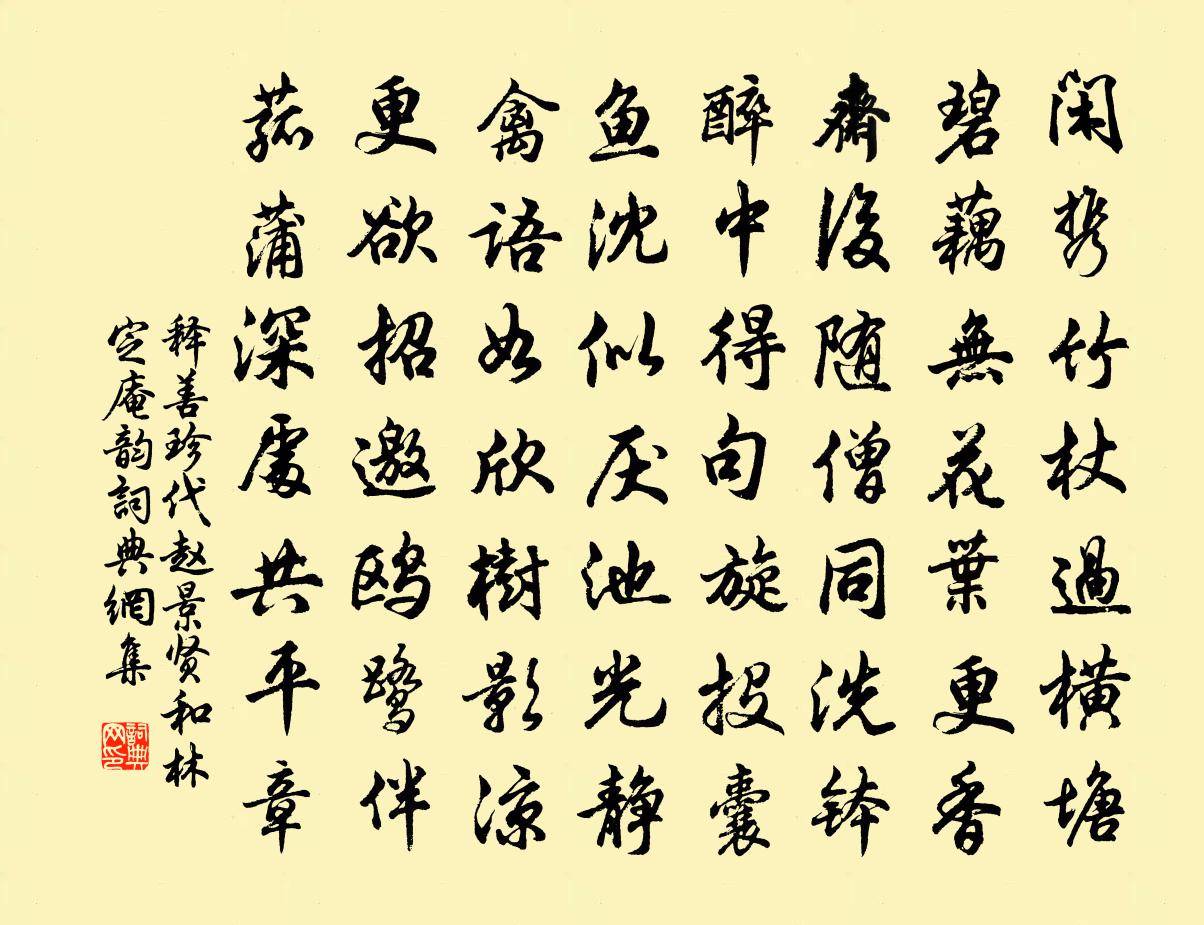 闲携竹杖過横塘
碧藕無花葉更香
齋後随僧同洗钵
醉中得句旋投囊
鱼沈似厌池光静
禽語如欣樹影凉
更欲招邀鸥鹭伴
菰蒲深處共平章
释善珍代赵景贤和林
定庵韵詞典網集
詞典网印